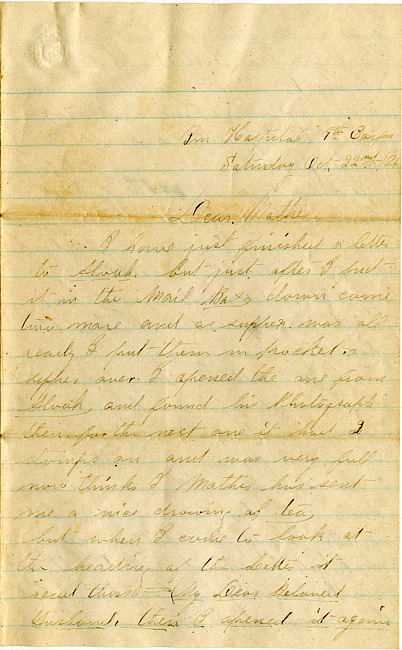 In Hospital 7th Corps
Saturday Oct 22nd /64
Dear Mattie
I have just finished a letter
to but just after I put
it in the Mail Box down come
two more and as supper was all
ready I put them in pocket &
supper over I opened the one from
and found his Photograph
then for the next one it had 2
stamps on and was very full
now thinks I Mattie has sent
me a nice drawing of tea
but when I come to look at
the heading of the Letter it
read thus = My Dear Beloved
Husband, then I opened it again